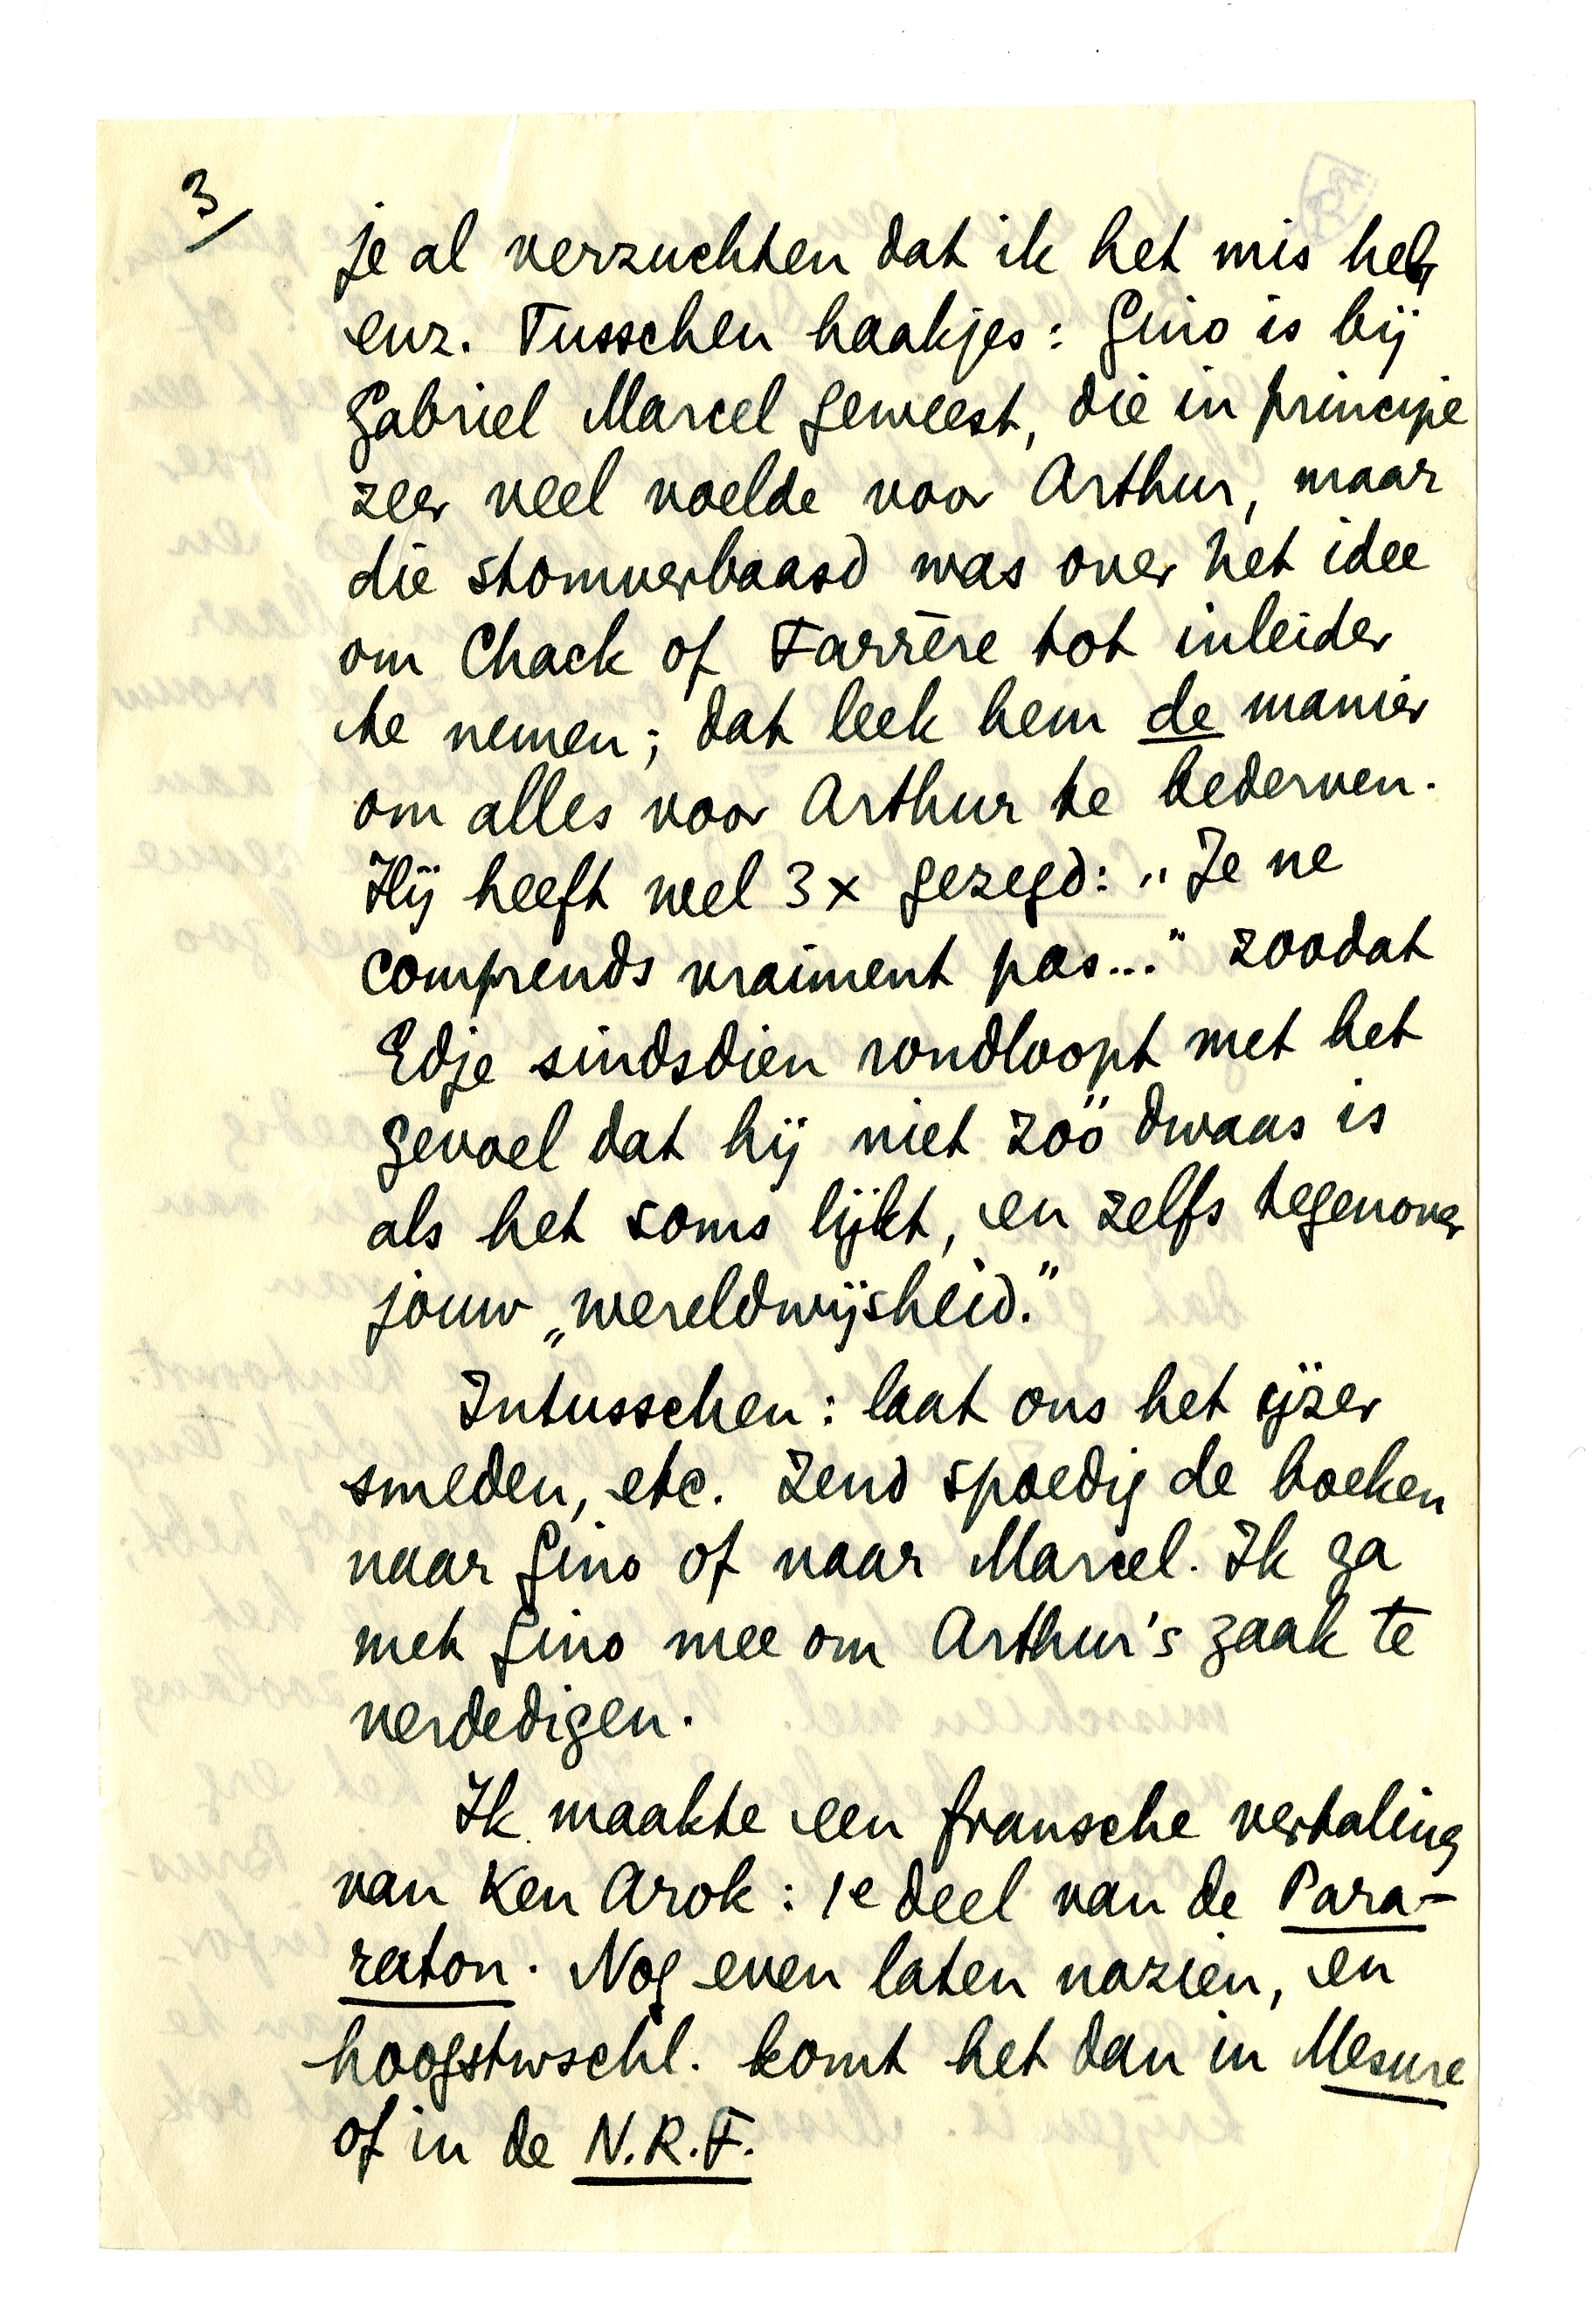 3/
je al verzuchten dat ik het mis heb,
enz. Tusschen haakjes: Gino is bij
Gabriel Marcel geweest, die in principe
zeer veel voelde voor Arthur, maar
die stomverbaasd was over het idee
om Chack of Farrère tot inleider
te nemen; dat leek hem de manier
om alles voor Arthur te bederven.
Hij heeft wel 3x gezegd: „Je ne
comprends vraiment pas..." zoodat
Edje sindsdien rondloopt met het
gevoel dat hij niet zóó dwaas is
als het soms lijkt, en zelfs tegenover
jouw „wereldwijsheid."
Intusschen: laat ons het ijzer
smeden, etc. Zend spoedig de boeken
naar Gino of naar Marcel. Ik ga
met Gino mee om Arthur's zaak te
verdedigen.
Ik maakte een fransche vertaling
van Ken Arok: 1e deel van de Para-
raton. Nog even laten nazien, en
hoogstwschl. komt het dan in Mesure
of in de N.R.F.